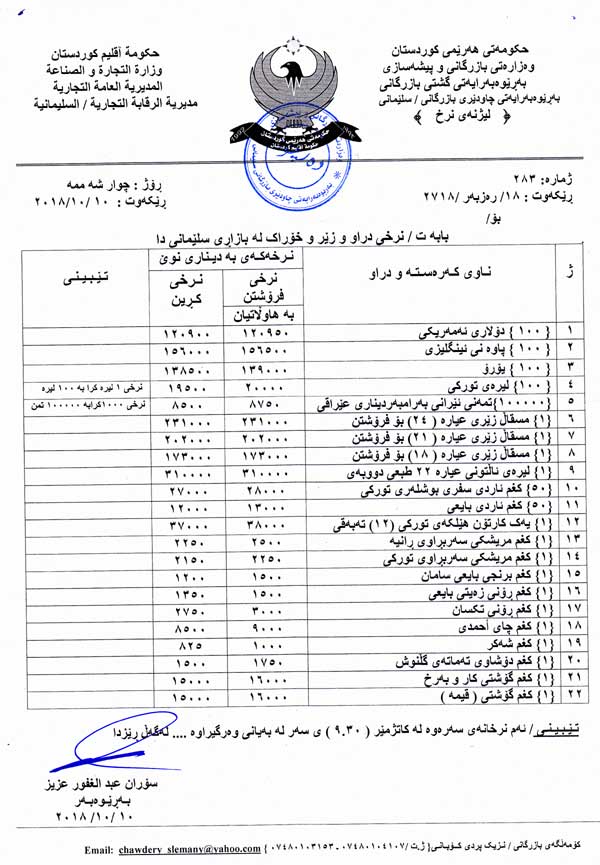 حکومەتی هەرێمی کوردستان
وەزارەتی بازرگانی و پیشەسازی
بەڕێوەبەرایەتی گشتی بازرگانی
بەڕێوەبەرایەتی چاودێری بازرگانی / سلێمانی
﴿ لیژنەی نرخ ﴾
حکومة أقلیم کوردستان
وزارة التجارة و الصناعة
المدیریة العامة التجاریة
مدیریة الرقابة التجاریة / السلیمانیة
حکومەتی هەرێمی کوردستان
حکومة أقلیم کردستان
ژمارە: ٢٨٣
ڕێکەوت : ١٨/ ڕەزبەر /٢٧١٨
ڕۆژ : چوار شە ممە
ڕێکەوت : ١٠ / ١٠ /٢٠١٨
بۆ/
بابە ت / نرخی دراو و زێر و خۆراک لە بازاڕی سلێمانی دا
ژ ناوی کەرەستە و دراو نرخەکەی بە دیناری نوێ تێبینی
نرخی فرۆشتن بە هاوڵاتیان نرخی کڕین
١ {١٠٠} دۆلاری ئەمەریکی ١٢٠٩٥٠ ١٢٠٩٠٠
٢ {١٠٠} پاوە نی ئینگلیزی ١٥٦٥٠٠ ١٥٦٠٠٠
٣ {١٠٠} یۆرۆ ١٣٩٠٠٠ ١٣٨٥٠٠
٤ {١٠٠} لیرەی تورکی ٢٠٠٠٠ ١٩٥٠٠ نرخی ١ لیرە کرا بە ١٠٠ لیرە
٥ {١٠٠٠٠٠}تمەنی ئێرانی بەرامبەردیناری عێراقی ٨٧٥٠ ٨٥٠٠ نرخی ١٠٠٠کرابە ١٠٠٠٠٠ تمن
٦ {١} مسقاڵ زێری عیارە ( ٢٤) بۆ فرۆشتن ٢٣١٠٠٠ ٢٣١٠٠٠
٧ {١} مسقاڵ زێری عیارە ( ٢١) بۆ فرۆشتن ٢٠٢٠٠٠ ٢٠٢٠٠٠
٨ {١} مسقاڵ زێری عیارە ( ١٨) بۆ فرۆشتن ١٧٣٠٠٠ ١٧٣٠٠٠
٩ {١} لیرەی ئاڵتونی عیارە ٢٢ طبعی دووبەی ٣١٠٠٠٠ ٣١٠٠٠٠
١٠ {٥٠} کغم ئاردی سفری بوشلەری تورکی ٢٨٠٠٠ ٢٧٠٠٠
١١ {٥٠} کغم ئاردی بایعی ١٣٠٠٠ ١٢٠٠٠
١٢ {١} یەک کارتۆن هێلکەی تورکی (١٢) تەبەقی ٣٨٠٠٠ ٣٧٠٠٠
١٣ {١} کغم مریشکی سەربڕاوی ڕانیە ٢٥٠٠ ٢٢٥٠
١٤ {١} کغم مریشکی سەربڕاوی تورکی ٢٢٥٠ ٢١٥٠
١٥ {١} کغم برنجی بایعی سامان ١٥٠٠ ١٢٠٠
١٦ {١} کغم ڕۆنی زەیتی بایعی ١٥٠٠ ١٣٥٠
١٧ {١} کغم ڕۆنی تکسان ٣٠٠٠ ٢٧٥٠
١٨ {١} کغم چای أحمدی ٩٠٠٠ ٨٥٠٠
١٩ {١} کغم شەکر ١٠٠٠ ٨٢٥
٢٠ {١} کغم دۆشاوی تەماتەی گڵنوش ١٧٥٠ ١٥٠٠
٢١ {١} کغم گۆشتی کار و بەرخ ١٦٠٠٠ ١٥٠٠٠
٢٢ {١} کغم گۆشتی ( قیمە ) ١٦٠٠٠ ١٥٠٠٠
تێبینی/ ئەم نرخانەی سەرەوە لە کاتژمێر ( ٩.٣٠ ) ی سەر لە بەیانی وەرگیراوە .... لەگەڵ ڕێزدا
سۆران عبد الغفور عزیز
بەڕێوەبەر
١٠ / ١٠ / ٢٠١٨
کۆمەڵگەی بازرگانی / نزیک پردی کۆبانی{ ژ.ت / ٠٧٤٨٠١٠٤١٠٧ - ٠٧٤٨٠١٠٣١٥٣ } Email: chawdery_slemany@yahoo.com